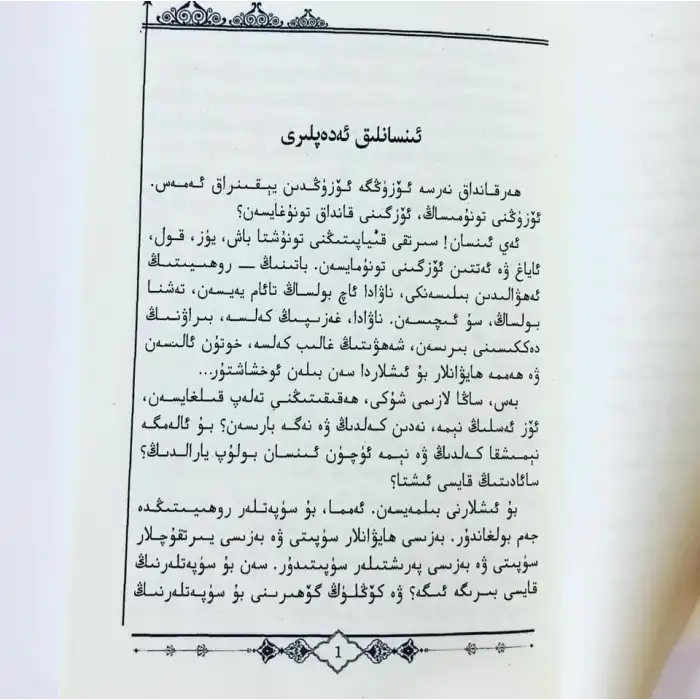 ئىنسانلىق ئەدەپلىرى
ھەرقانداق نەرسە ئۆزۈڭگە ئۆزۈڭدىن يېقىنراق ئەمەس.
ئۆزۈڭنى تونۇمىساڭ، ئۆزگىنى قانداق تونۇغايسەن؟
ئەي ئىنسان! سىرتقى قىياپىتىڭنى تونۇشتا باش، يۈز، قول،
ئاياغ ۋە ئەتتىن ئۆزگىنى تونۇمايسەن. باتىنىڭ — روھىيىتىڭ
ئەھۋالىدىن بىلىسەنكى، ناۋادا ئاچ بولساڭ تائام يەيسەن، تەشنا
بولساڭ، سۇ ئىچىسەن. ناۋادا، غەزىپىڭ كەلسە، بىراۋنىڭ
دەككىسىنى بىرىسەن، شەھۋىتىڭ غالىب كەلسە، خوتۇن ئالىسەن
ۋە ھەممە ھايۋانلار بۇ ئىشلاردا سەن بىلەن ئوخشاشتۇر...
بەس، ساڭا لازىمى شۇكى، ھەقىقىتىڭنى تەلەپ قىلغايسەن،
ئۆز ئەسلىڭ نېمە، نەدىن كەلدىڭ ۋە نەگە بارىسەن؟ بۇ ئالەمگە
نېمىشقا كەلدىڭ ۋە نېمە ئۈچۈن ئىنسان بولۇپ يارالدىڭ؟
سائادىتىڭ قايسى ئىشتا؟
بۇ ئىشلارنى بىلمەيسەن. ئەمما، بۇ سۈپەتلەر روھىيىتىڭدە
جەم بولغاندۇر. بەزىسى ھايۋانلار سۈپىتى ۋە بەزىسى يىرتقۇچلار
سۈپىتى ۋە بەزىسى پەرىشتىلەر سۈپىتىدۇر. سەن بۇ سۈپەتلەرنىڭ
قايسى بىرىگە ئىگە؟ ۋە كۆڭلۈڭ گۆھىرىنى بۇ سۈپەتلەرنىڭ
1